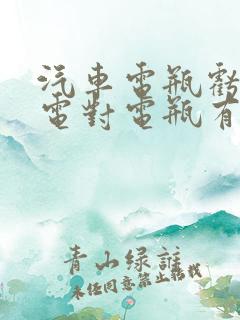 汽車電瓶虧
電對電瓶有
青山绿誰
未经同意禁止轉載